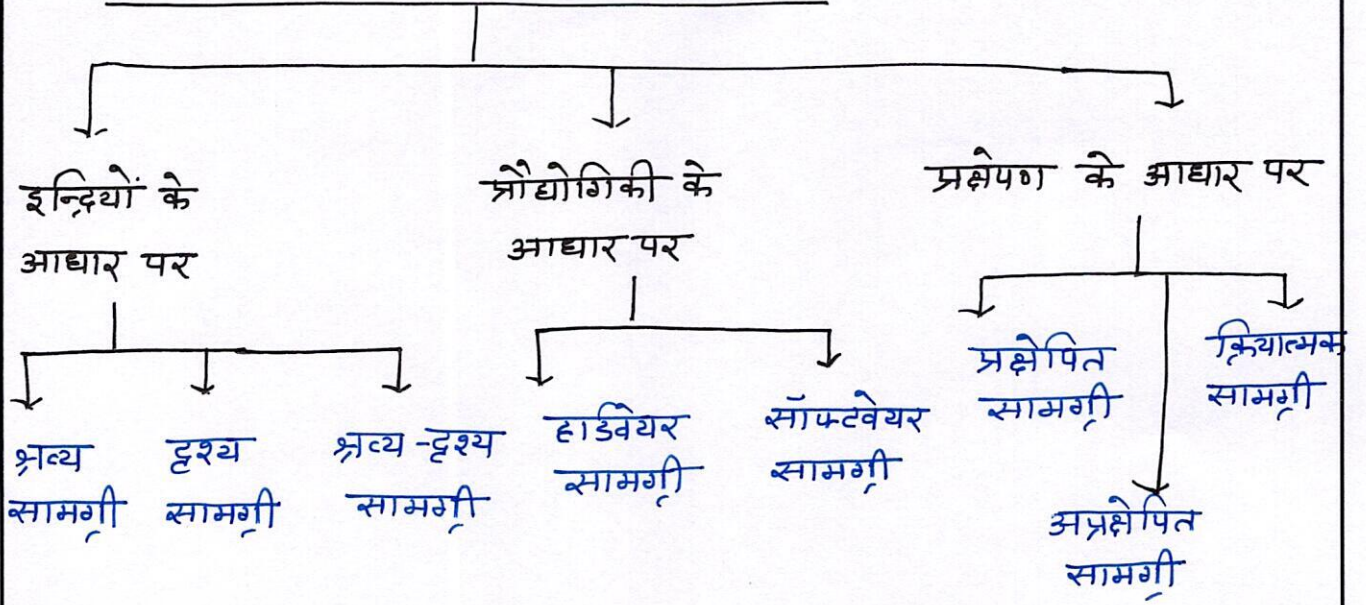 इन्द्रियों के
आधार पर
प्रौद्योगिकी के
आधार पर
प्रक्षेपण के आधार पर
श्रव्य
सामग्री
दृश्य
सामग्री
श्रव्य-दृश्य
सामग्री
हार्डवेयर
सामग्री
सॉफ्टवेयर
सामग्री
प्रक्षेपित
सामग्री
अप्रक्षेपित
सामग्री
क्रियात्मक
सामग्री